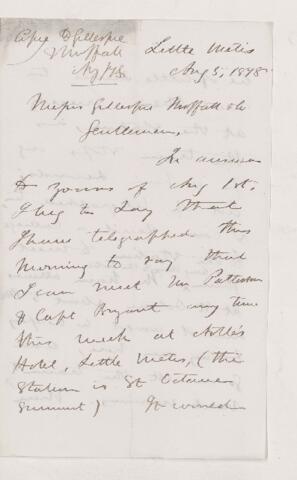 Copie D Gillespie
Moffatt
Aug /78
Little Metis
Aug 5, 1878
Messrs Gillespie Moffatt & Co
Gentlemen,
In answer
to yours of Aug 1st.
I beg to say that
I have telegraphed this
morning to say that
I can meet Mr Patterson
& Capt Bryant any time
this week at
Hotel, Little Metis, (the
Station is St Octave
) It would